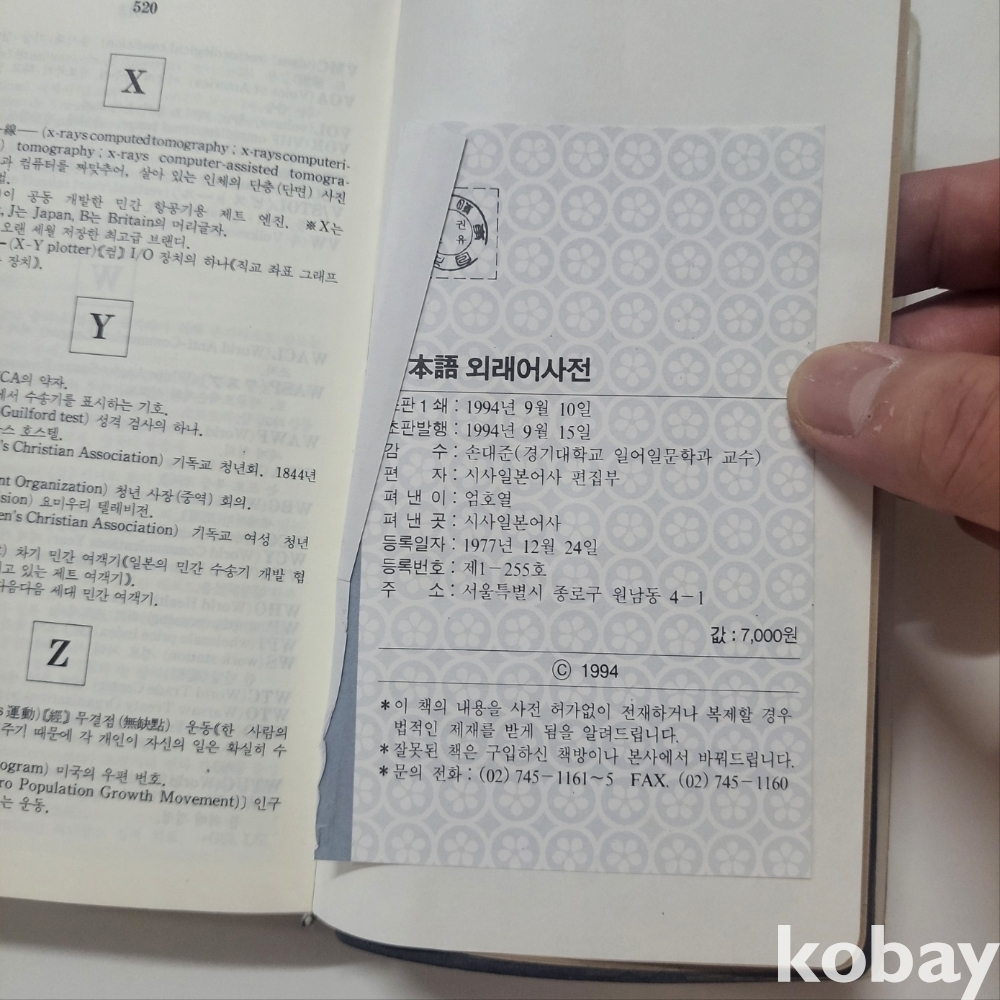 520
X
線— (x-rays computed tomography ; x-rays computeri-
) tomography ; x-rays computer-assisted tomogra-
과 컴퓨터를 짜맞추어, 살아 있는 인체의 단층(단면) 사진
이 공동 개발한 민간 항공기용 제트 엔진. ※X는
, J는 Japan, B는 Britain의 머리글자.
오랜 세월 저장한 최고급 브랜디.
—(X-Y plotter)《컴》 I/O 장치의 하나《직교 좌표 그래프
장치》.
Y
CA의 약자.
에서 수송기를 표시하는 기호.
Guilford test) 성격 검사의 하나.
스 호스텔.
's Christian Association) 기독교 청년회. 1844년
nt Organization) 청년 사장(중역) 회의.
sion) 요미우리 텔레비전.
en's Christian Association) 기독교 여성 청년
) 차기 민간 여객기《일본의 민간 수송기 개발 협
고 있는 제트 여객기》.
다음다음 세대 민간 여객기.
Z
s 運動)《經》 무결점(無缺點) 운동《한 사람의
주기 때문에 각 개인이 자신의 일은 확실히 수
ogram) 미국의 우편 번호.
ro Population Growth Movement)〕 인구
는 운동.
권
유
本語 외래어사전
초판 1 쇄 : 1994년 9월 10일
초판발행 : 1994년 9월 15일
감 수 : 손대준(경기대학교 일어일문학과 교수)
편 자 : 시사일본어사 편집부
펴 낸 이 : 엄호열
펴 낸 곳 : 시사일본어사
등록일자 : 1977년 12월 24일
등록번호 : 제1-255호
주 소 : 서울특별시 종로구 원남동 4-1
값 : 7,000원
© 1994
* 이 책의 내용을 사전 허가없이 전재하거나 복제할 경우
법적인 제재를 받게 됨을 알려드립니다.
* 잘못된 책은 구입하신 책방이나 본사에서 바꿔드립니다.
* 문의 전화 : (02) 745-1161~5 FAX. (02) 745-1160
kobay